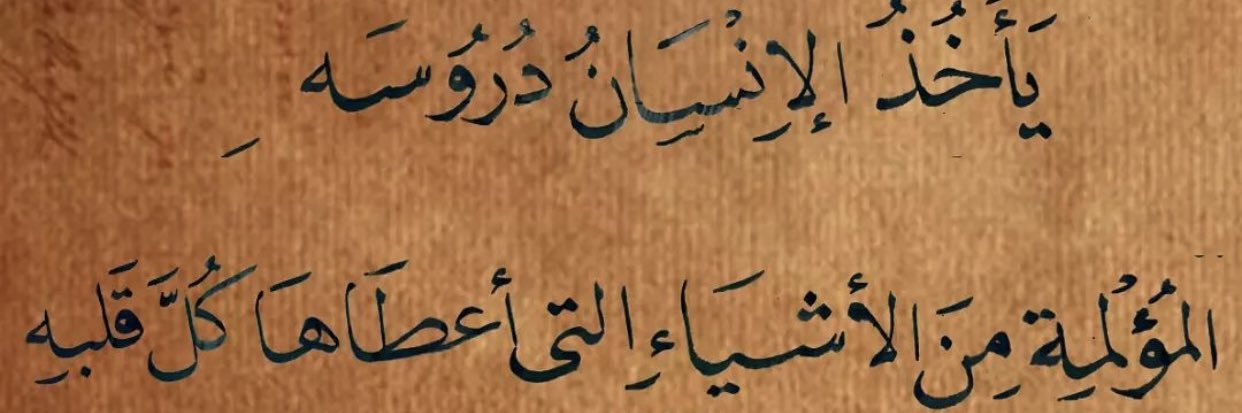 يَأَخُذُ الإِنْسَِانُ دُرُوُسَه
المُؤْلمِة مِنَ الأشيَاءِ التى أعطَاهَا كُلَّ قَلبهِ